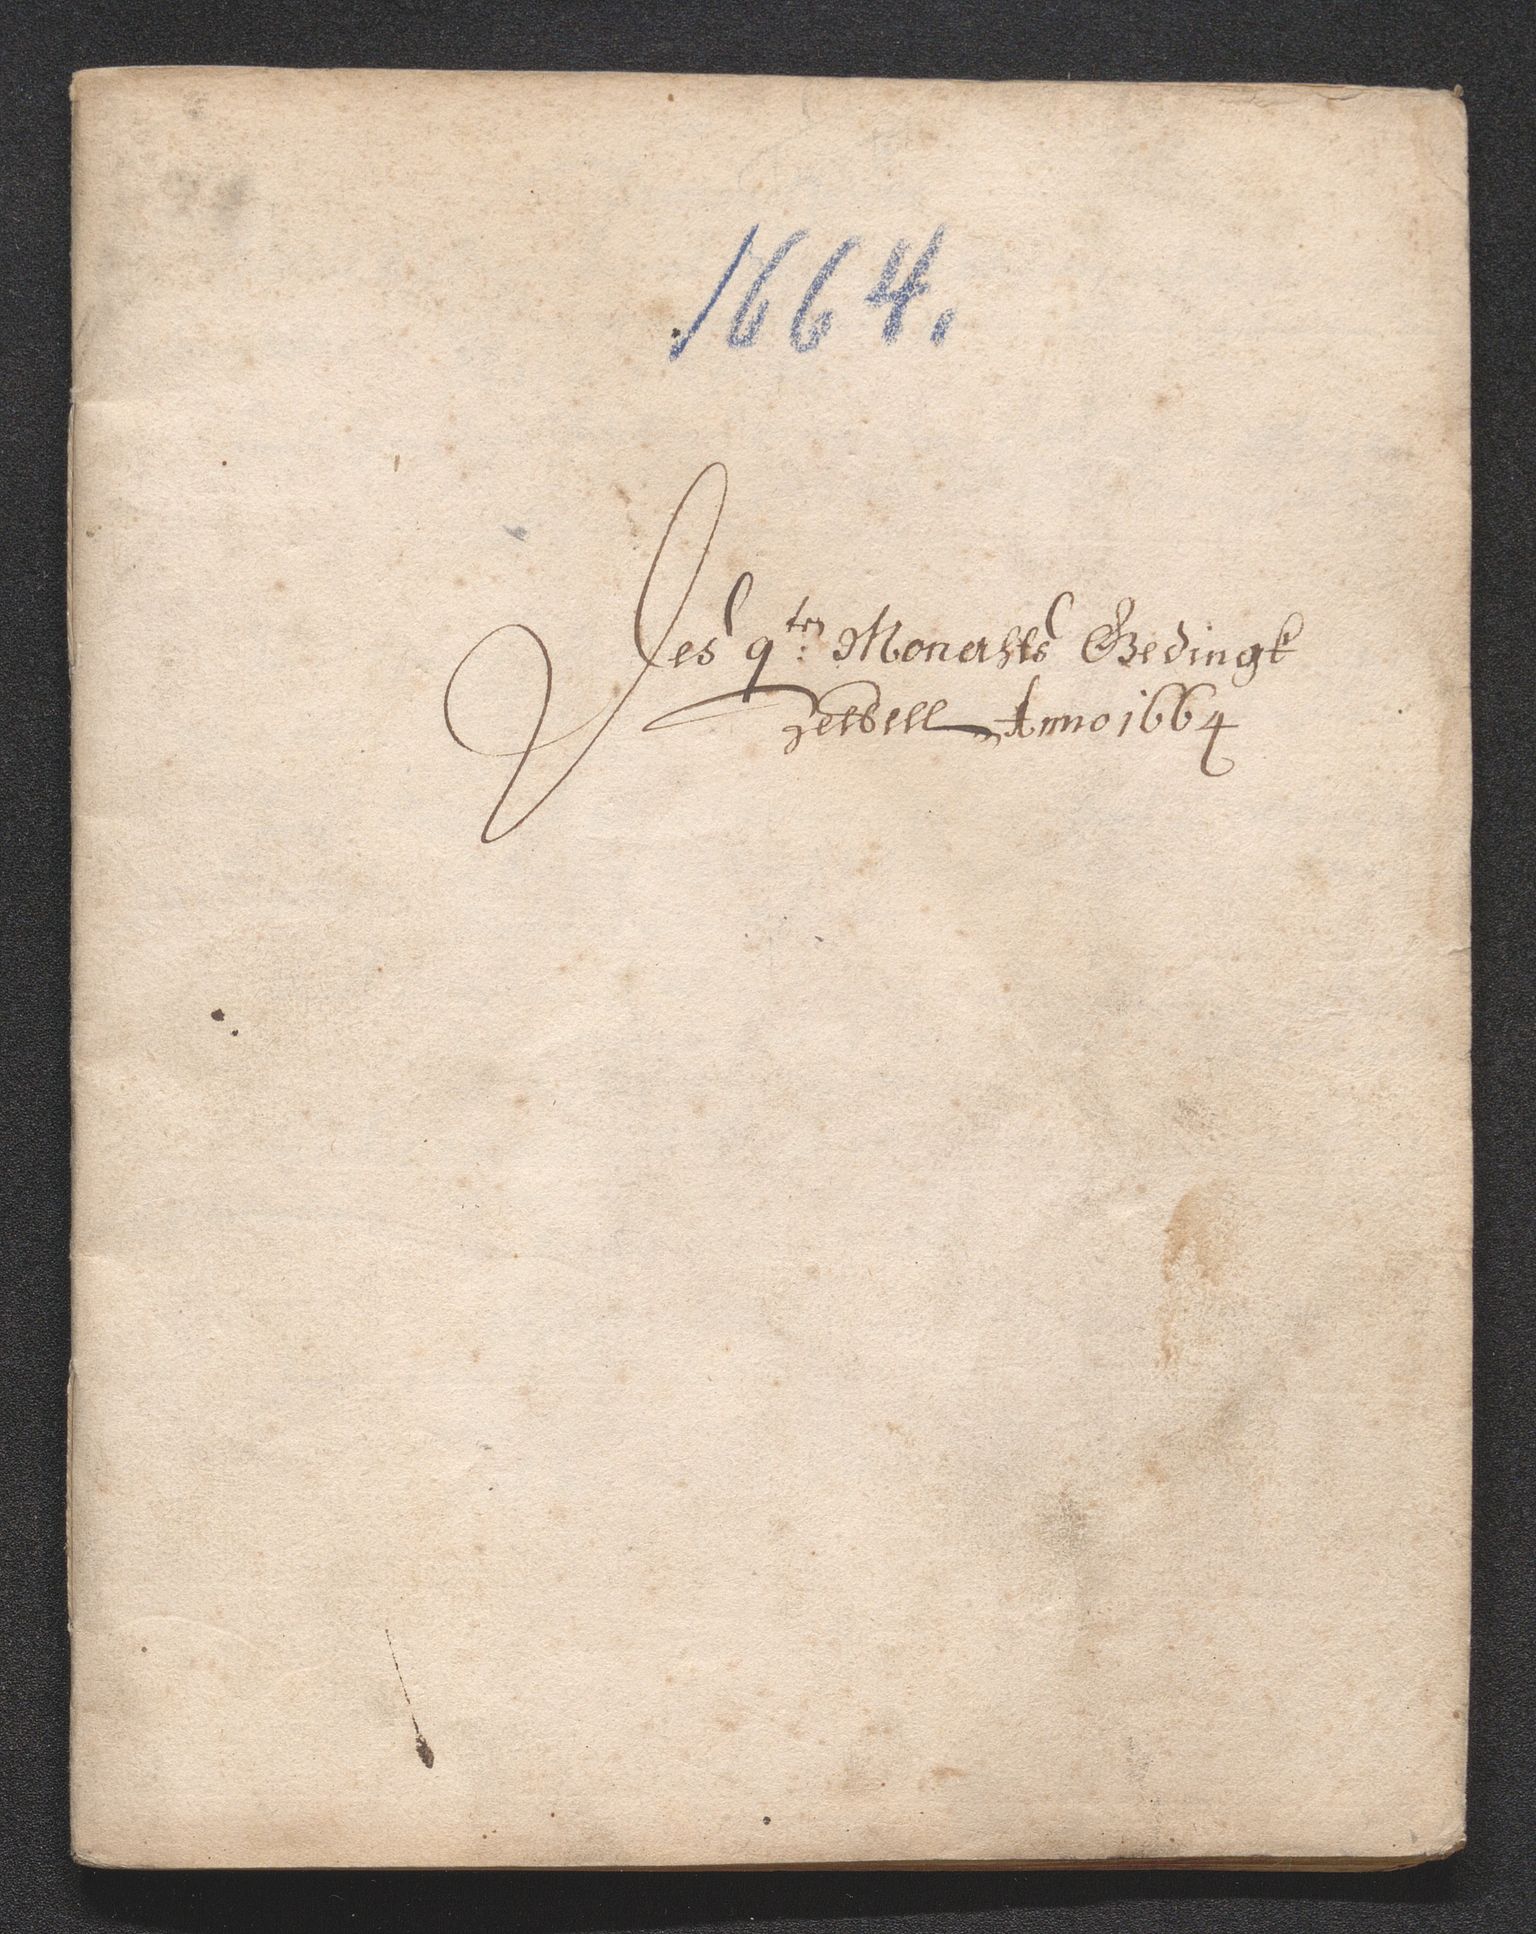 1664.
Des 9ten Monahts Gedingk
Zettell Anno 1664